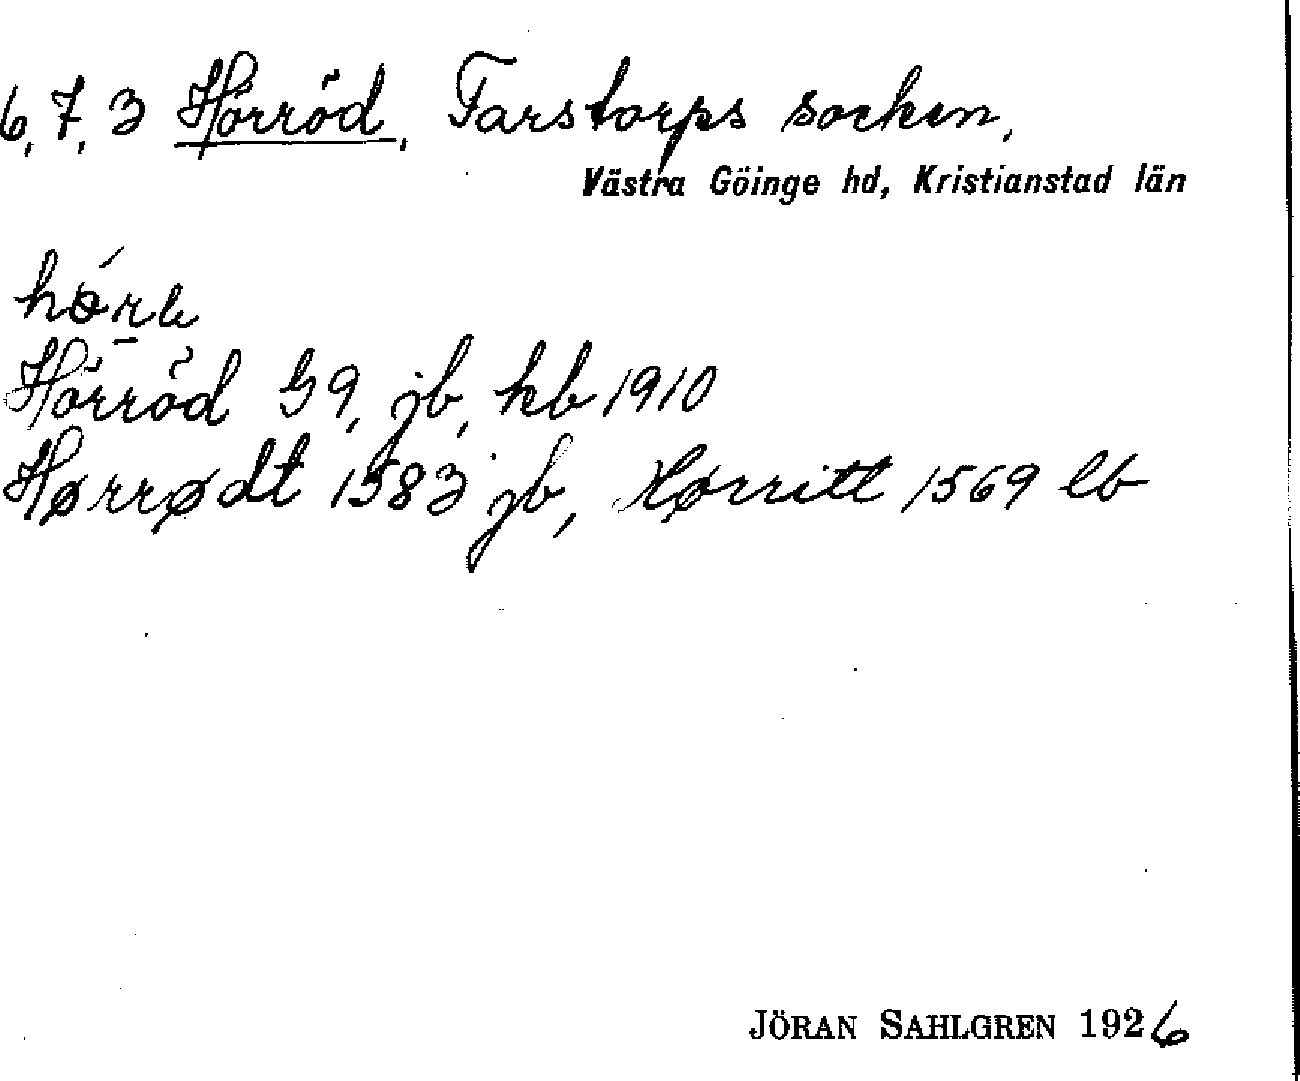 6, 7, 3 Hörröd, Farstorps socken,
Västra Göinge hd, Kristianstad län
Hörröd G 9, jb, kb 1910
Hørrødt 1583 jb, Hørritt 1569 lb
JÖRAN SAHLGREN 1926